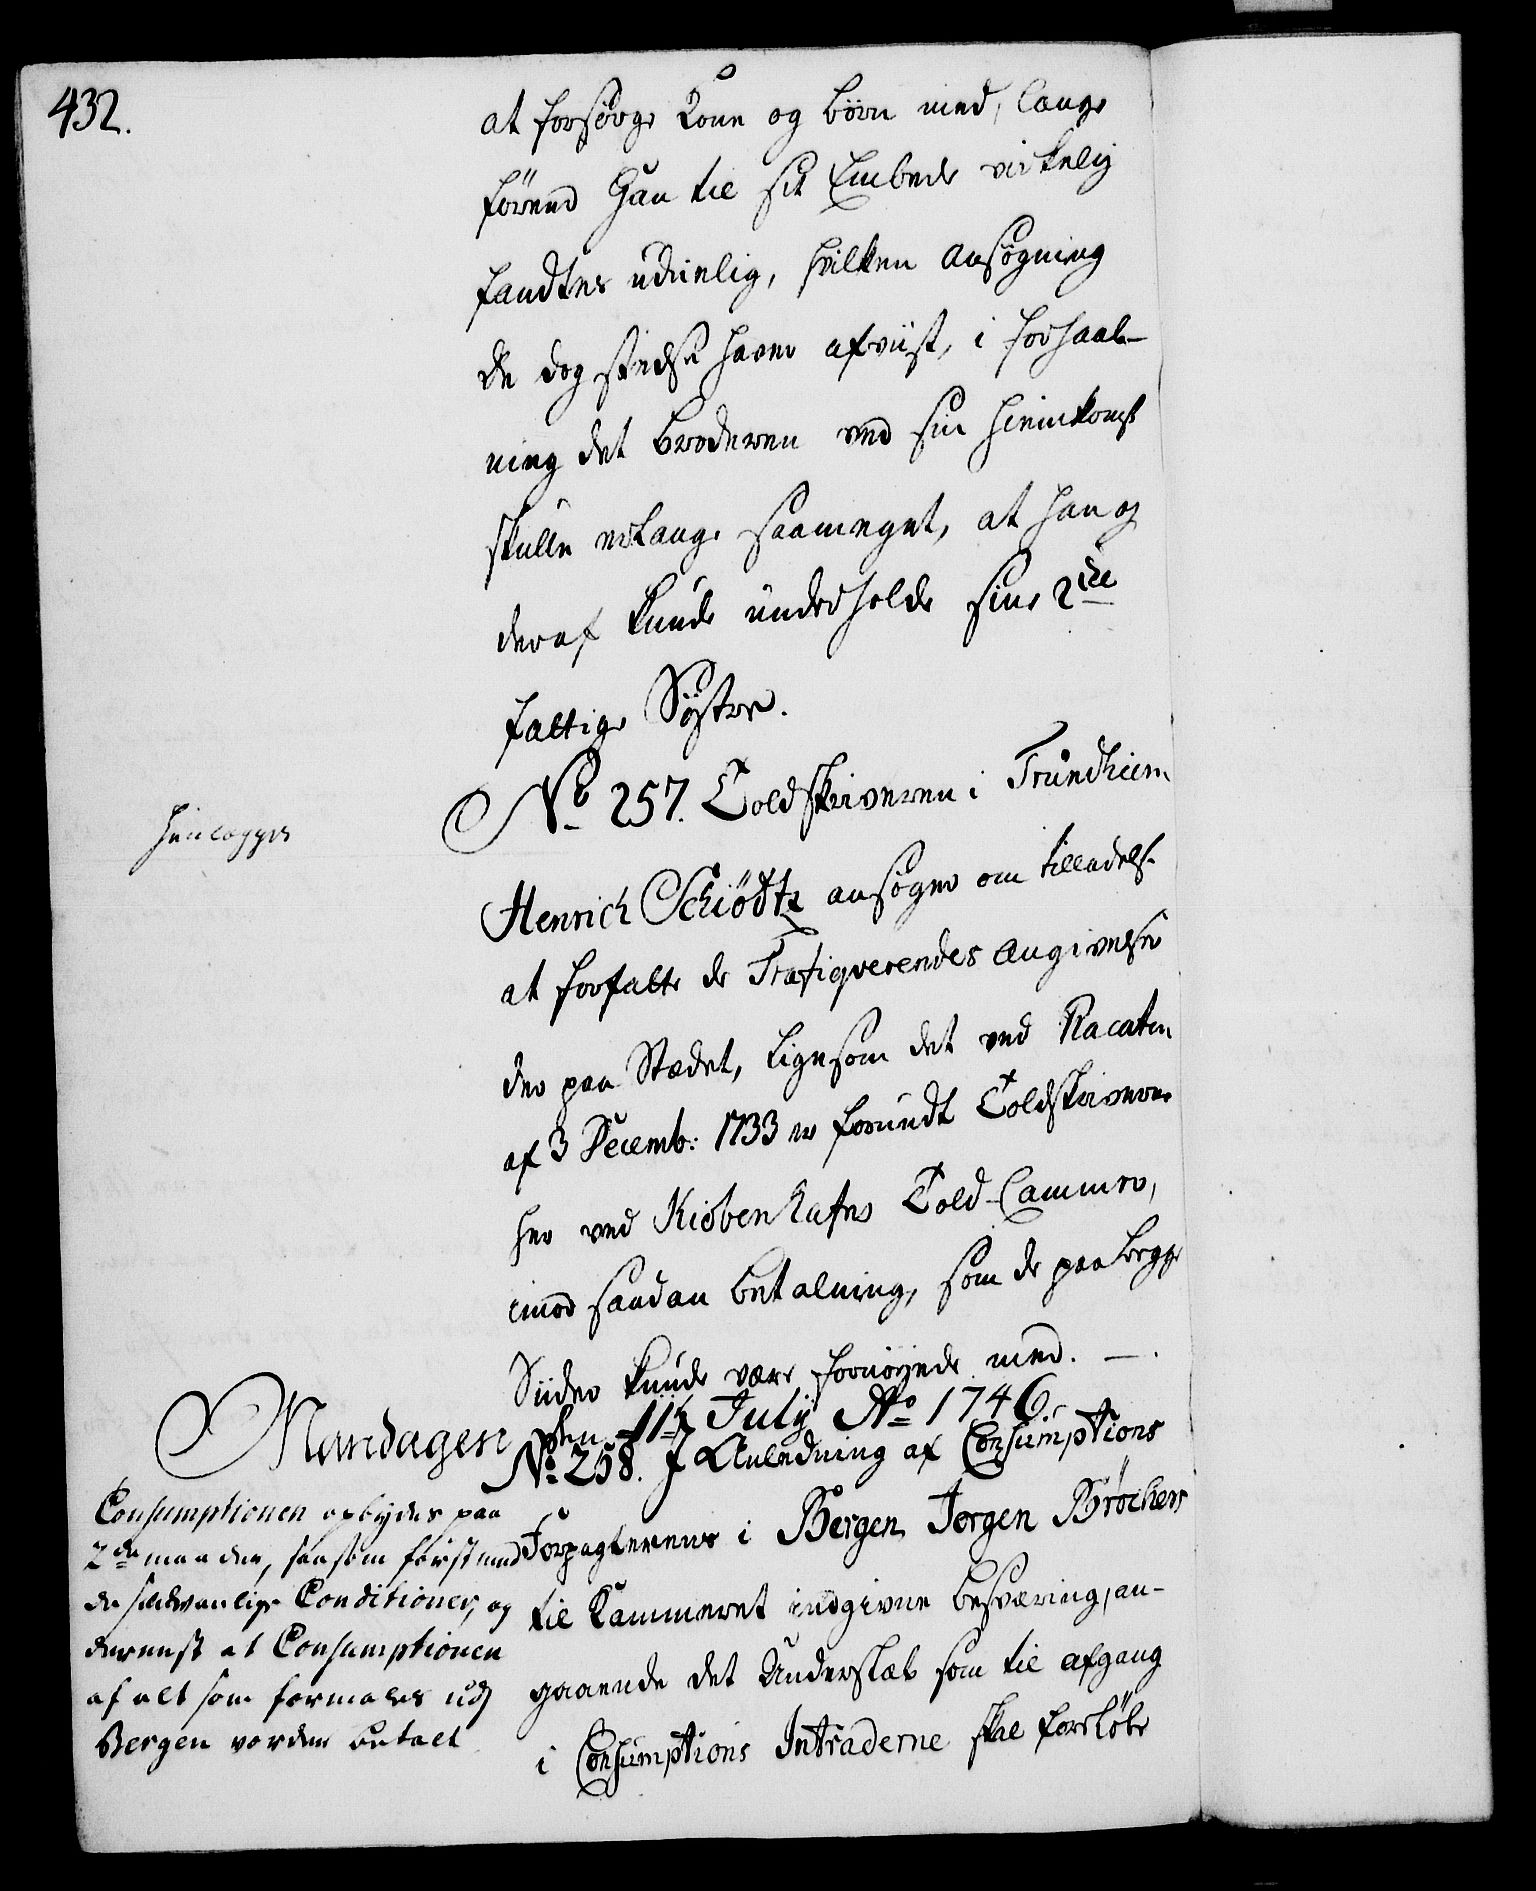 432.
at forsørge Kone og børn med, længe
førend Han til sit Embede virkelig
fandtes udienlig, hvilken ansøgning
de dog stedse haver afviist, i forhaab-
ning det broderen ved sin Hiemkomst
skulle erlange saameget, at han og
deraf kunde underholde sine 2de
fattige Søstre.
No 257. Toldskriveren i Trundhiem
Henlægges
Henrich Schiödtz ansøger om tilladelse
at forfatte de Trafiqverendes Angivelser
der paa Stædet, ligesom det ved Placaten
af 3 Decemb: 1733 er forundt Toldskriverne
her ved Kiøbenhafns Told-Cammer,
imod saadan betalning, som de paa begge
Siider kunde være fornøyede med. —.
Mandagen den 11te July Ao 1746.
No 258. I Anledning af Consumptions
Forpagterens i Bergen Jørgen Brøchers
til Kammeret indgivne besværing, an-
gaaende det Underslæb som til afgang
i Consumptions Intraderne skal forløbe
Consumptionen opbydes paa
2de maader, saasom først med
de sædvanlige Conditioner, og
dernæst at Consumptionen
af alt som formales udj
Bergen vorder betalt